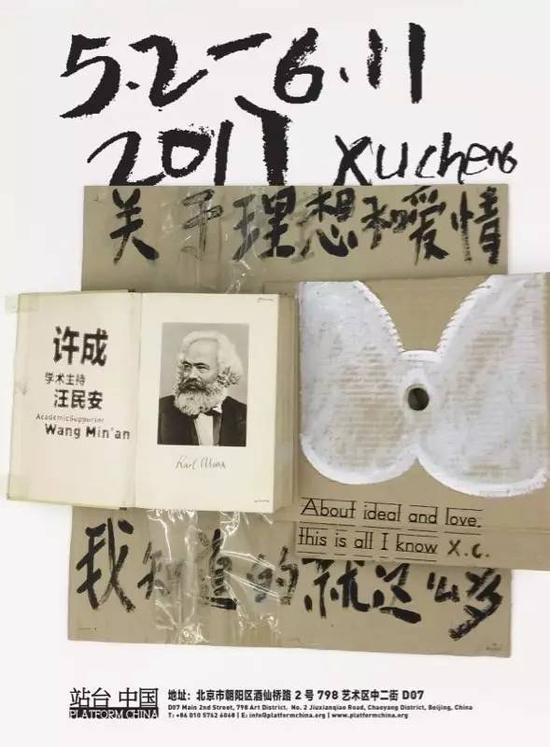 5.2-6.11
2017 xucheng
关于理想和爱情
许成
学术主持
汪民安
AcademicSupporter
Wang Min'an
Karl Marx
About ideal and love.
this is all I know X.C.
我知道的就这么多
站台 中国
PLATFORM CHINA
地址：北京市朝阳区酒仙桥路 2 号 798 艺术区中二街 D07
D07 Main 2nd Street, 798 Art District, No. 2 Jiuxianqiao Road, Chaoyang District, Beijing, China
T: +86 010 5762 6068 | E: info@platformchina.org | www.platformchina.org